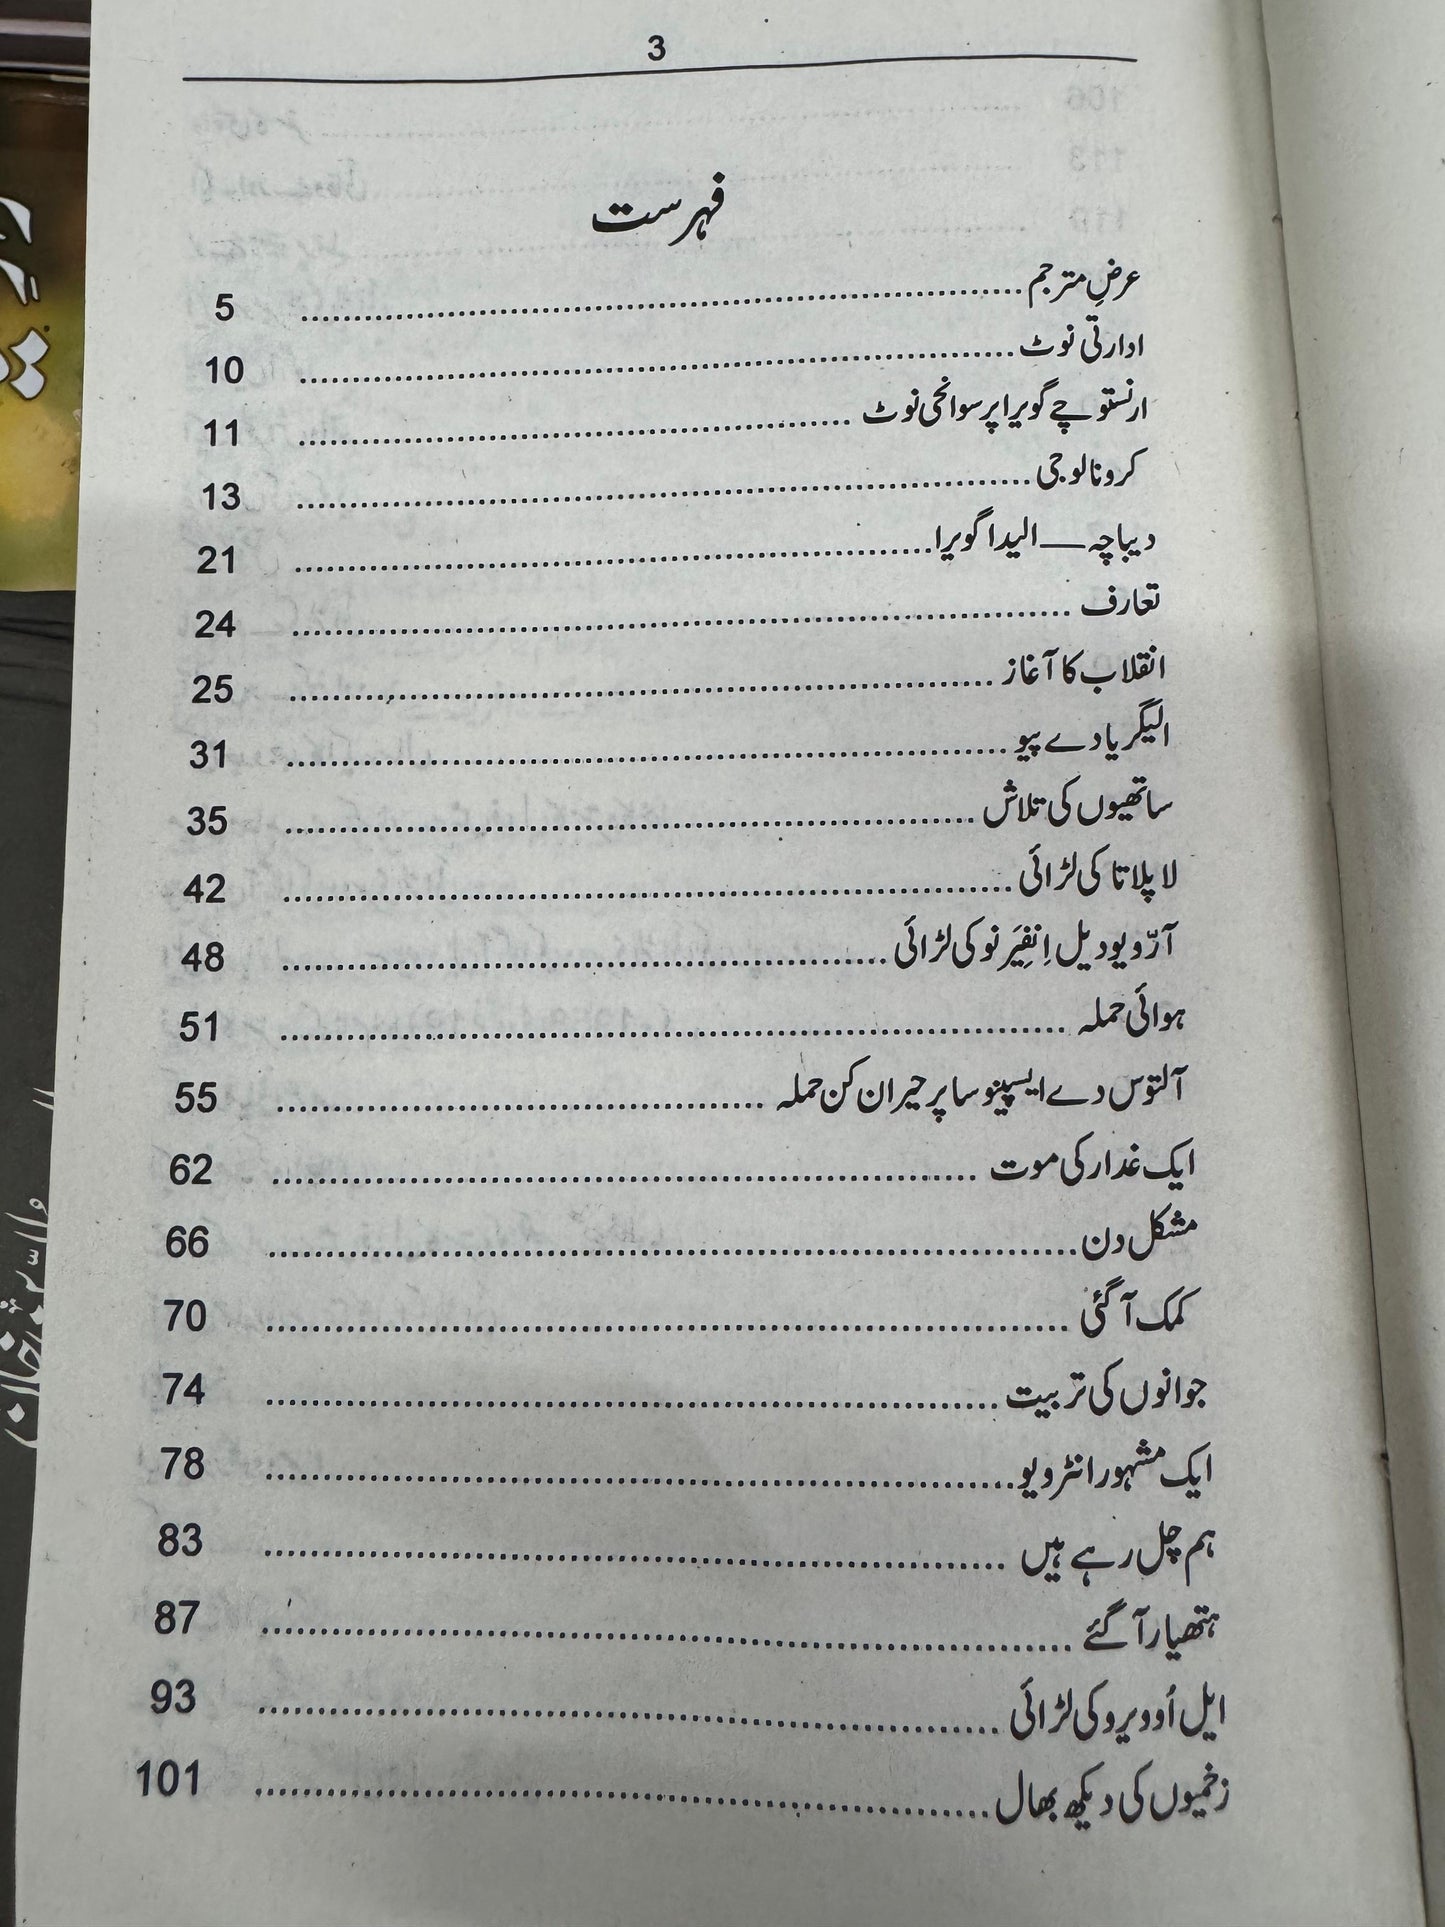 3
فہرست
عرضِ مترجم 5
ادارتی نوٹ 10
ارنستو چے گویرا پر سوانحی نوٹ 11
کرونالوجی 13
دیباچہ — الیدا گویرا 21
تعارف 24
انقلاب کا آغاز 25
الیگریا دے پیو 31
ساتھیوں کی تلاش 35
لا پلاتا کی لڑائی 42
آرّویو دیل اِنفِیَرنو کی لڑائی 48
ہوائی حملہ 51
آلتوس دے ایسپینوسا پر حیران کن حملہ 55
ایک غدار کی موت 62
مشکل دن 66
کمک آ گئی 70
جوانوں کی تربیت 74
ایک مشہور انٹرویو 78
ہم چل رہے ہیں 83
ہتھیار آ گئے 87
ایل اُوویرو کی لڑائی 93
زخمیوں کی دیکھ بھال 101